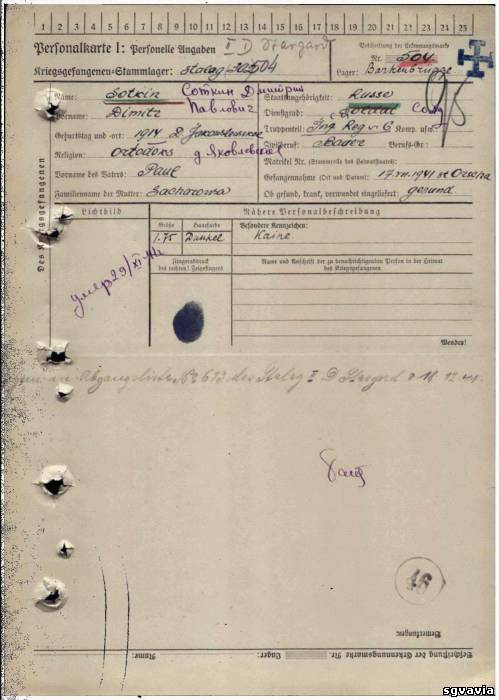 1 2 3 4 5 6 7 8 9 10 11 12 13 14 15 16 17 18 19 20 21 22 23 24 25
II D Stargard
Personalkarte I: Personelle Angaben
Beschriftung der Erkennungsmarke
Nr. 504
Kriegsgefangenen-Stammlager: Stalag 302 504
Lager: Barkenbrügge
Des Kriegsgefangenen
Name: Sotkin Соткин Дмитрий
Staatsangehörigkeit: Russe
Vorname: Dimitr Павлович
Dienstgrad: Soldat Солд
Geburtstag und -ort: 1914 D.
Truppenteil: Komp. usw.:
Religion: Ortodoks д. Яковлевское
Zivilberuf: Bauer Berufs-Gr.:
Matrikel Nr. (Stammrolle des Heimatstaates):
Vorname des Vaters: Paul
Gefangennahme (Ort und Datum):
Familienname der Mutter: Sacharowa
Ob gesund, krank, verwundet eingeliefert: gesund
Lichtbild
Nähere Personalbeschreibung
Größe
Haarfarbe
Besondere Kennzeichen:
1.75
Dunkel
Kaine
Fingerabdruck
des rechten! Zeigefingers
Name und Anschrift der zu benachrichtigenden Person in der Heimat
des Kriegsgefangenen
умер 29/XI-44
Wenden!
Abgangsliste № 613 des Stalag II D Stargard
46
Bemerkungen:
Beschriftung der Erkennungsmarke Nr.
Lager:
Name:
sgvavia